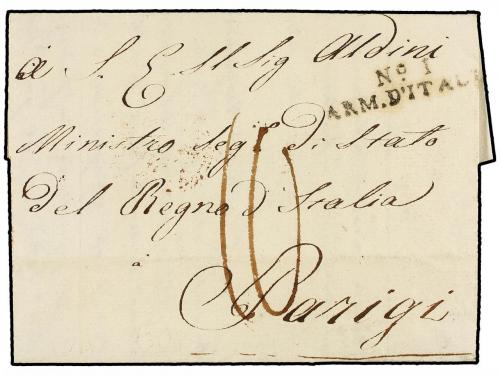 à S. E. Il Sig Aldini
No. 1
ARM. D'ITAL
Ministro Seg.o di Stato
Del Regno d'Italia
à
Parigi
10